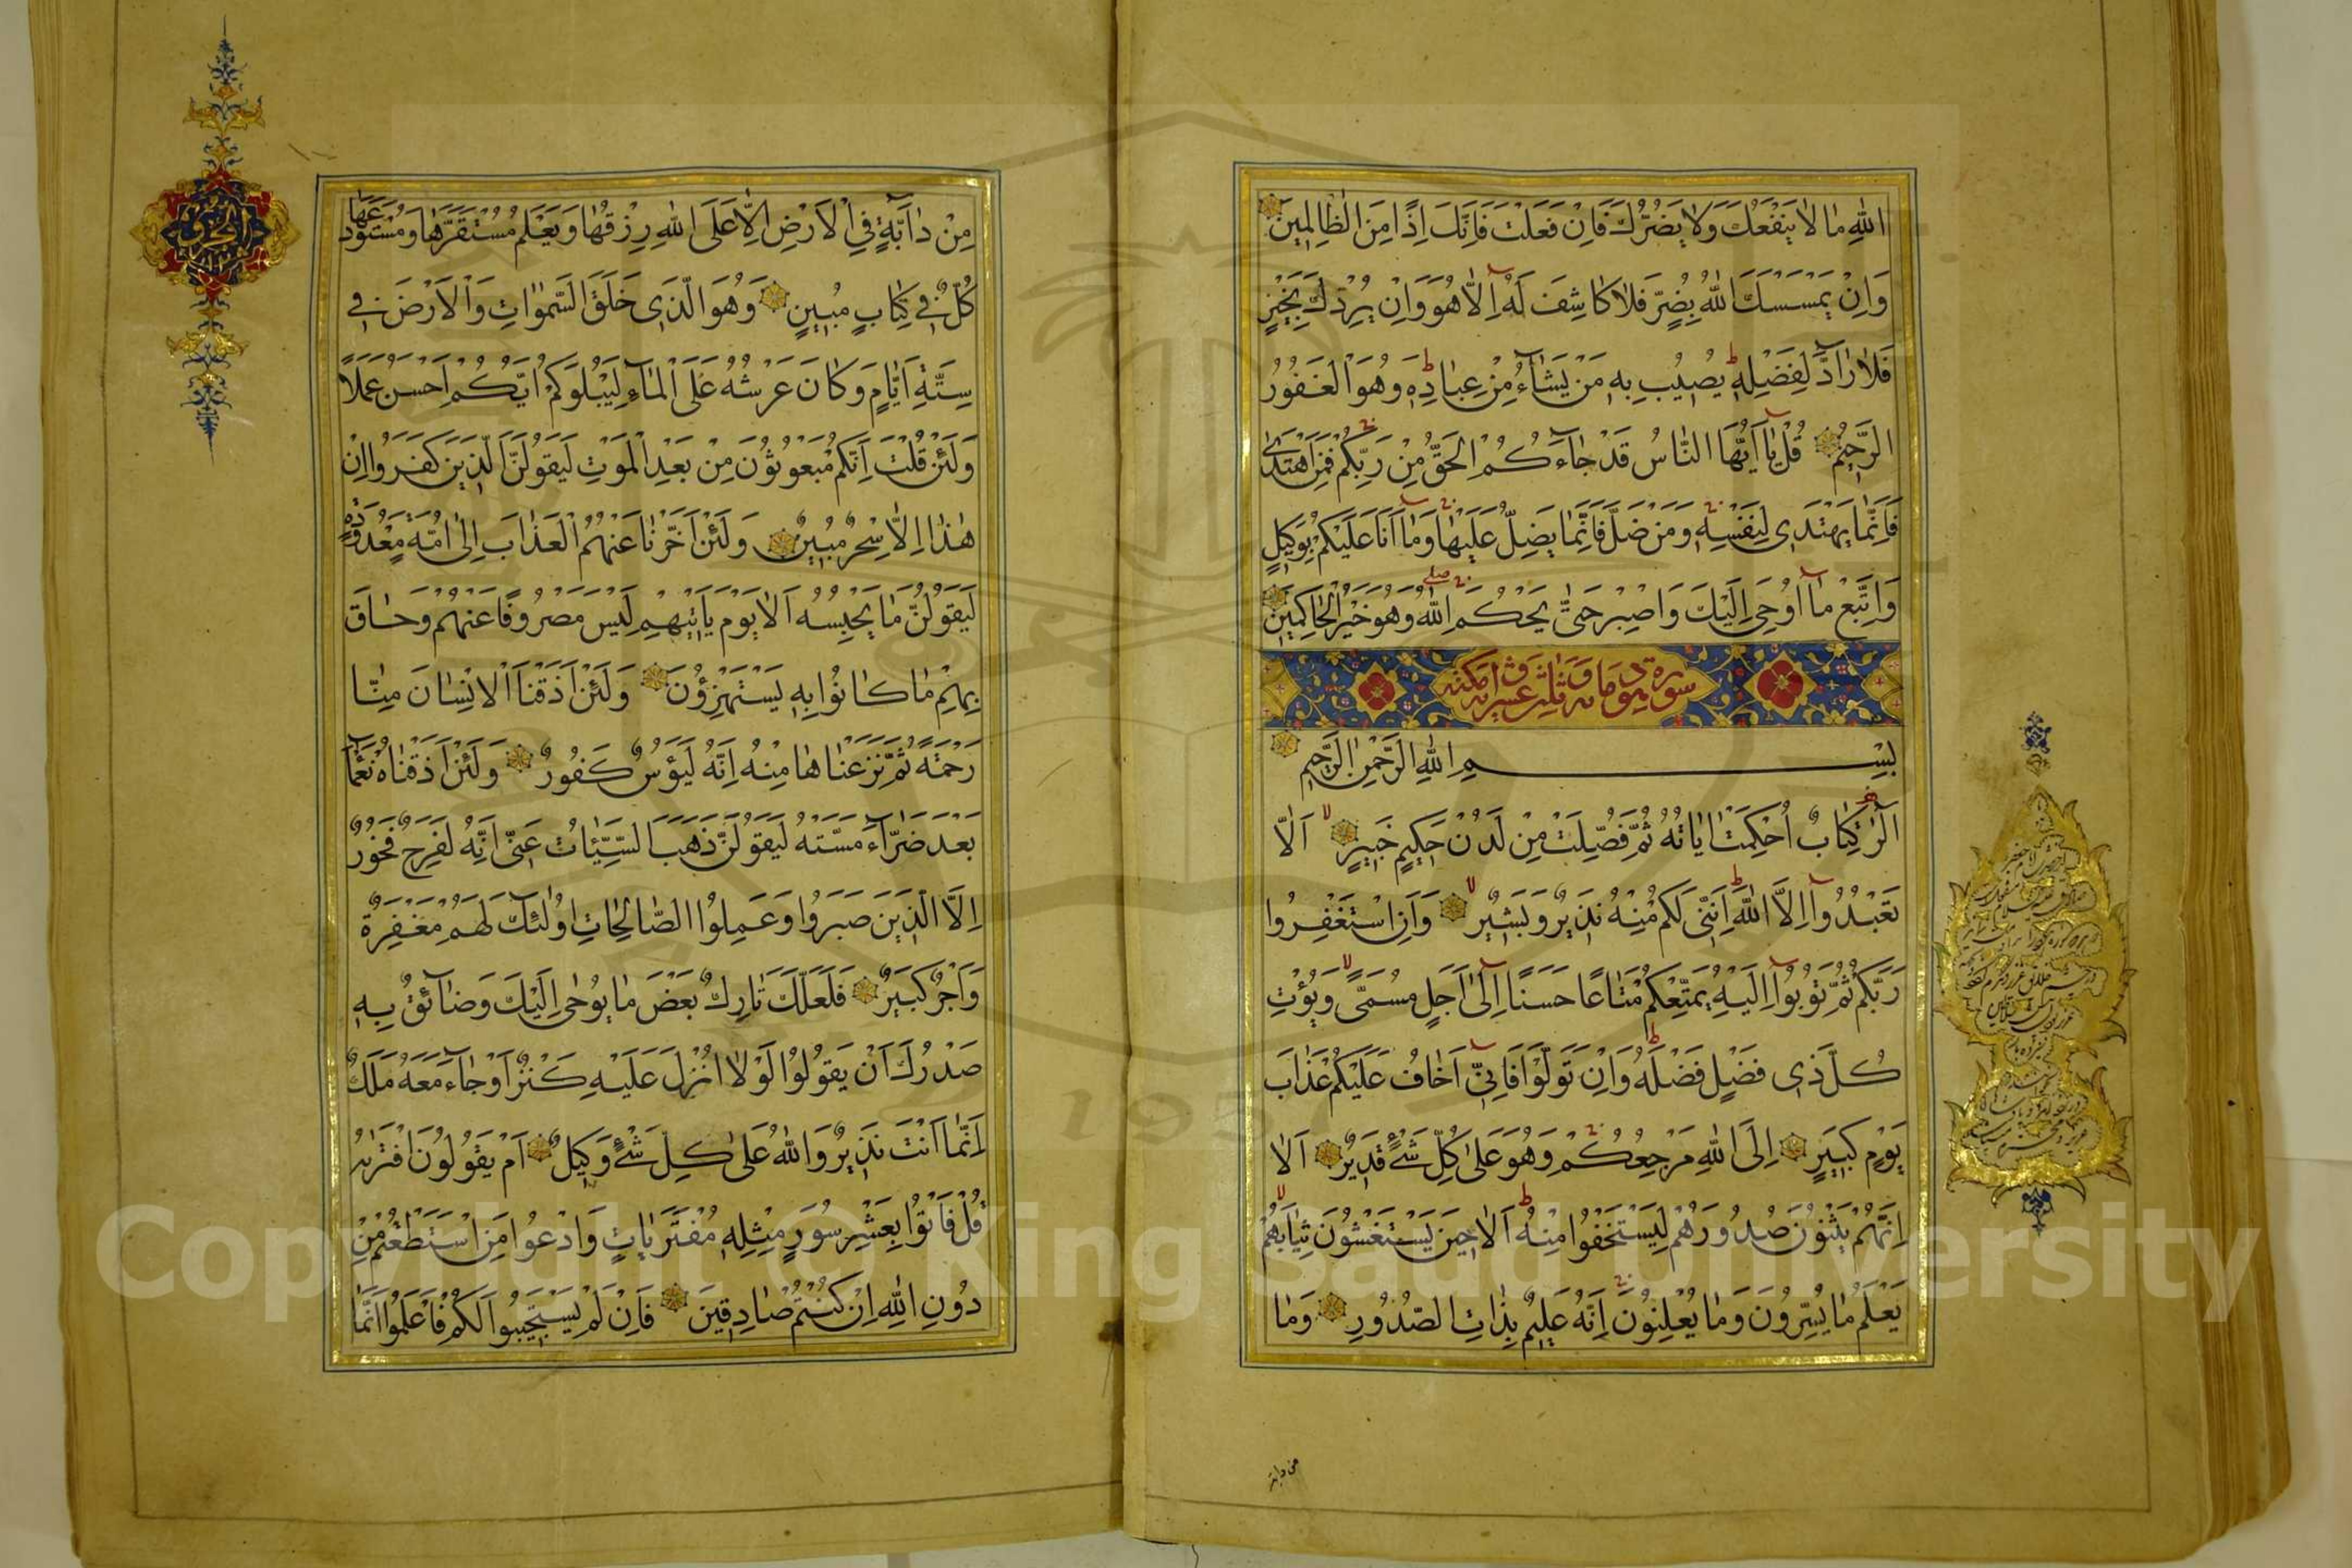 اللهِ مَا لَا يَنْفَعُكَ وَلَا يَضُرُّكَ فَاِنْ فَعَلْتَ فَاِنَّكَ اِذًا مِنَ الظَّالِمِينَ
وَاِنْ يَمْسَسْكَ اللهُ بِضُرٍّ فَلَا كَاشِفَ لَهُ اِلَّا هُوَ وَاِنْ يُرِدْكَ بِخَيْرٍ
فَلَا رَآدَّ لِفَضْلِهِ يُصِيبُ بِهِ مَنْ يَشَآءُ مِنْ عِبَادِهِ وَهُوَ الْغَفُورُ
الرَّحِيمُ قُلْ يَآ اَيُّهَا النَّاسُ قَدْ جَآءَكُمُ الْحَقُّ مِنْ رَبِّكُمْ فَمَنِ اهْتَدَى
فَاِنَّمَا يَهْتَدِي لِنَفْسِهِ وَمَنْ ضَلَّ فَاِنَّمَا يَضِلُّ عَلَيْهَا وَمَآ اَنَا عَلَيْكُمْ بِوَكِيلٍ
وَاتَّبِعْ مَآ اُوحِيَ اِلَيْكَ وَاصْبِرْ حَتَّى يَحْكُمَ اللهُ وَهُوَ خَيْرُ الْحَاكِمِينَ
سورة هود مائة وثلث وعشرون اية مكية
بِسْمِ اللهِ الرَّحْمٰنِ الرَّحِيمِ
الٓرٰ كِتَابٌ اُحْكِمَتْ اٰيَاتُهُ ثُمَّ فُصِّلَتْ مِنْ لَدُنْ حَكِيمٍ خَبِيرٍ اَلَّا
تَعْبُدُوآ اِلَّا اللهَ اِنَّنِي لَكُمْ مِنْهُ نَذِيرٌ وَبَشِيرٌ وَاَنِ اسْتَغْفِرُوا
رَبَّكُمْ ثُمَّ تُوبُوآ اِلَيْهِ يُمَتِّعْكُمْ مَتَاعًا حَسَنًا اِلَىٓ اَجَلٍ مُسَمًّى وَيُؤْتِ
كُلَّ ذِي فَضْلٍ فَضْلَهُ وَاِنْ تَوَلَّوْا فَاِنِّيٓ اَخَافُ عَلَيْكُمْ عَذَابَ
يَوْمٍ كَبِيرٍ اِلَى اللهِ مَرْجِعُكُمْ وَهُوَ عَلَى كُلِّ شَيْءٍ قَدِيرٌ اَلَا
اِنَّهُمْ يَثْنُونَ صُدُورَهُمْ لِيَسْتَخْفُوا مِنْهُ اَلَا حِينَ يَسْتَغْشُونَ ثِيَابَهُمْ
يَعْلَمُ مَا يُسِرُّونَ وَمَا يُعْلِنُونَ اِنَّهُ عَلِيمٌ بِذَاتِ الصُّدُورِ وَمَا
من دابة
مِنْ دَآبَّةٍ فِي الْاَرْضِ اِلَّا عَلَى اللهِ رِزْقُهَا وَيَعْلَمُ مُسْتَقَرَّهَا وَمُسْتَوْدَعَهَا
كُلٌّ فِي كِتَابٍ مُبِينٍ وَهُوَ الَّذِي خَلَقَ السَّمٰوَاتِ وَالْاَرْضَ فِي
سِتَّةِ اَيَّامٍ وَكَانَ عَرْشُهُ عَلَى الْمَآءِ لِيَبْلُوَكُمْ اَيُّكُمْ اَحْسَنُ عَمَلًا
وَلَئِنْ قُلْتَ اِنَّكُمْ مَبْعُوثُونَ مِنْ بَعْدِ الْمَوْتِ لَيَقُولَنَّ الَّذِينَ كَفَرُوا اِنْ
هٰذَا اِلَّا سِحْرٌ مُبِينٌ وَلَئِنْ اَخَّرْنَا عَنْهُمُ الْعَذَابَ اِلَى اُمَّةٍ مَعْدُودَةٍ
لَيَقُولُنَّ مَا يَحْبِسُهُ اَلَا يَوْمَ يَاْتِيهِمْ لَيْسَ مَصْرُوفًا عَنْهُمْ وَحَاقَ
بِهِمْ مَا كَانُوا بِهِ يَسْتَهْزِؤُنَ وَلَئِنْ اَذَقْنَا الْاِنْسَانَ مِنَّا
رَحْمَةً ثُمَّ نَزَعْنَاهَا مِنْهُ اِنَّهُ لَيَؤُسٌ كَفُورٌ وَلَئِنْ اَذَقْنَاهُ نَعْمَآءَ
بَعْدَ ضَرَّآءَ مَسَّتْهُ لَيَقُولَنَّ ذَهَبَ السَّيِّئَاتُ عَنِّي اِنَّهُ لَفَرِحٌ فَخُورٌ
اِلَّا الَّذِينَ صَبَرُوا وَعَمِلُوا الصَّالِحَاتِ اُولٰئِكَ لَهُمْ مَغْفِرَةٌ
وَاَجْرٌ كَبِيرٌ فَلَعَلَّكَ تَارِكٌ بَعْضَ مَا يُوحَى اِلَيْكَ وَضَآئِقٌ بِهِ
صَدْرُكَ اَنْ يَقُولُوا لَوْلَا اُنْزِلَ عَلَيْهِ كَنْزٌ اَوْ جَآءَ مَعَهُ مَلَكٌ
اِنَّمَا اَنْتَ نَذِيرٌ وَاللهُ عَلَى كُلِّ شَيْءٍ وَكِيلٌ اَمْ يَقُولُونَ افْتَرٰيهُ
قُلْ فَاْتُوا بِعَشْرِ سُوَرٍ مِثْلِهِ مُفْتَرَيَاتٍ وَادْعُوا مَنِ اسْتَطَعْتُمْ مِنْ
دُونِ اللهِ اِنْ كُنْتُمْ صَادِقِينَ فَاِنْ لَمْ يَسْتَجِيبُوا لَكُمْ فَاعْلَمُوا اَنَّمَا
Copyright © King Saud University